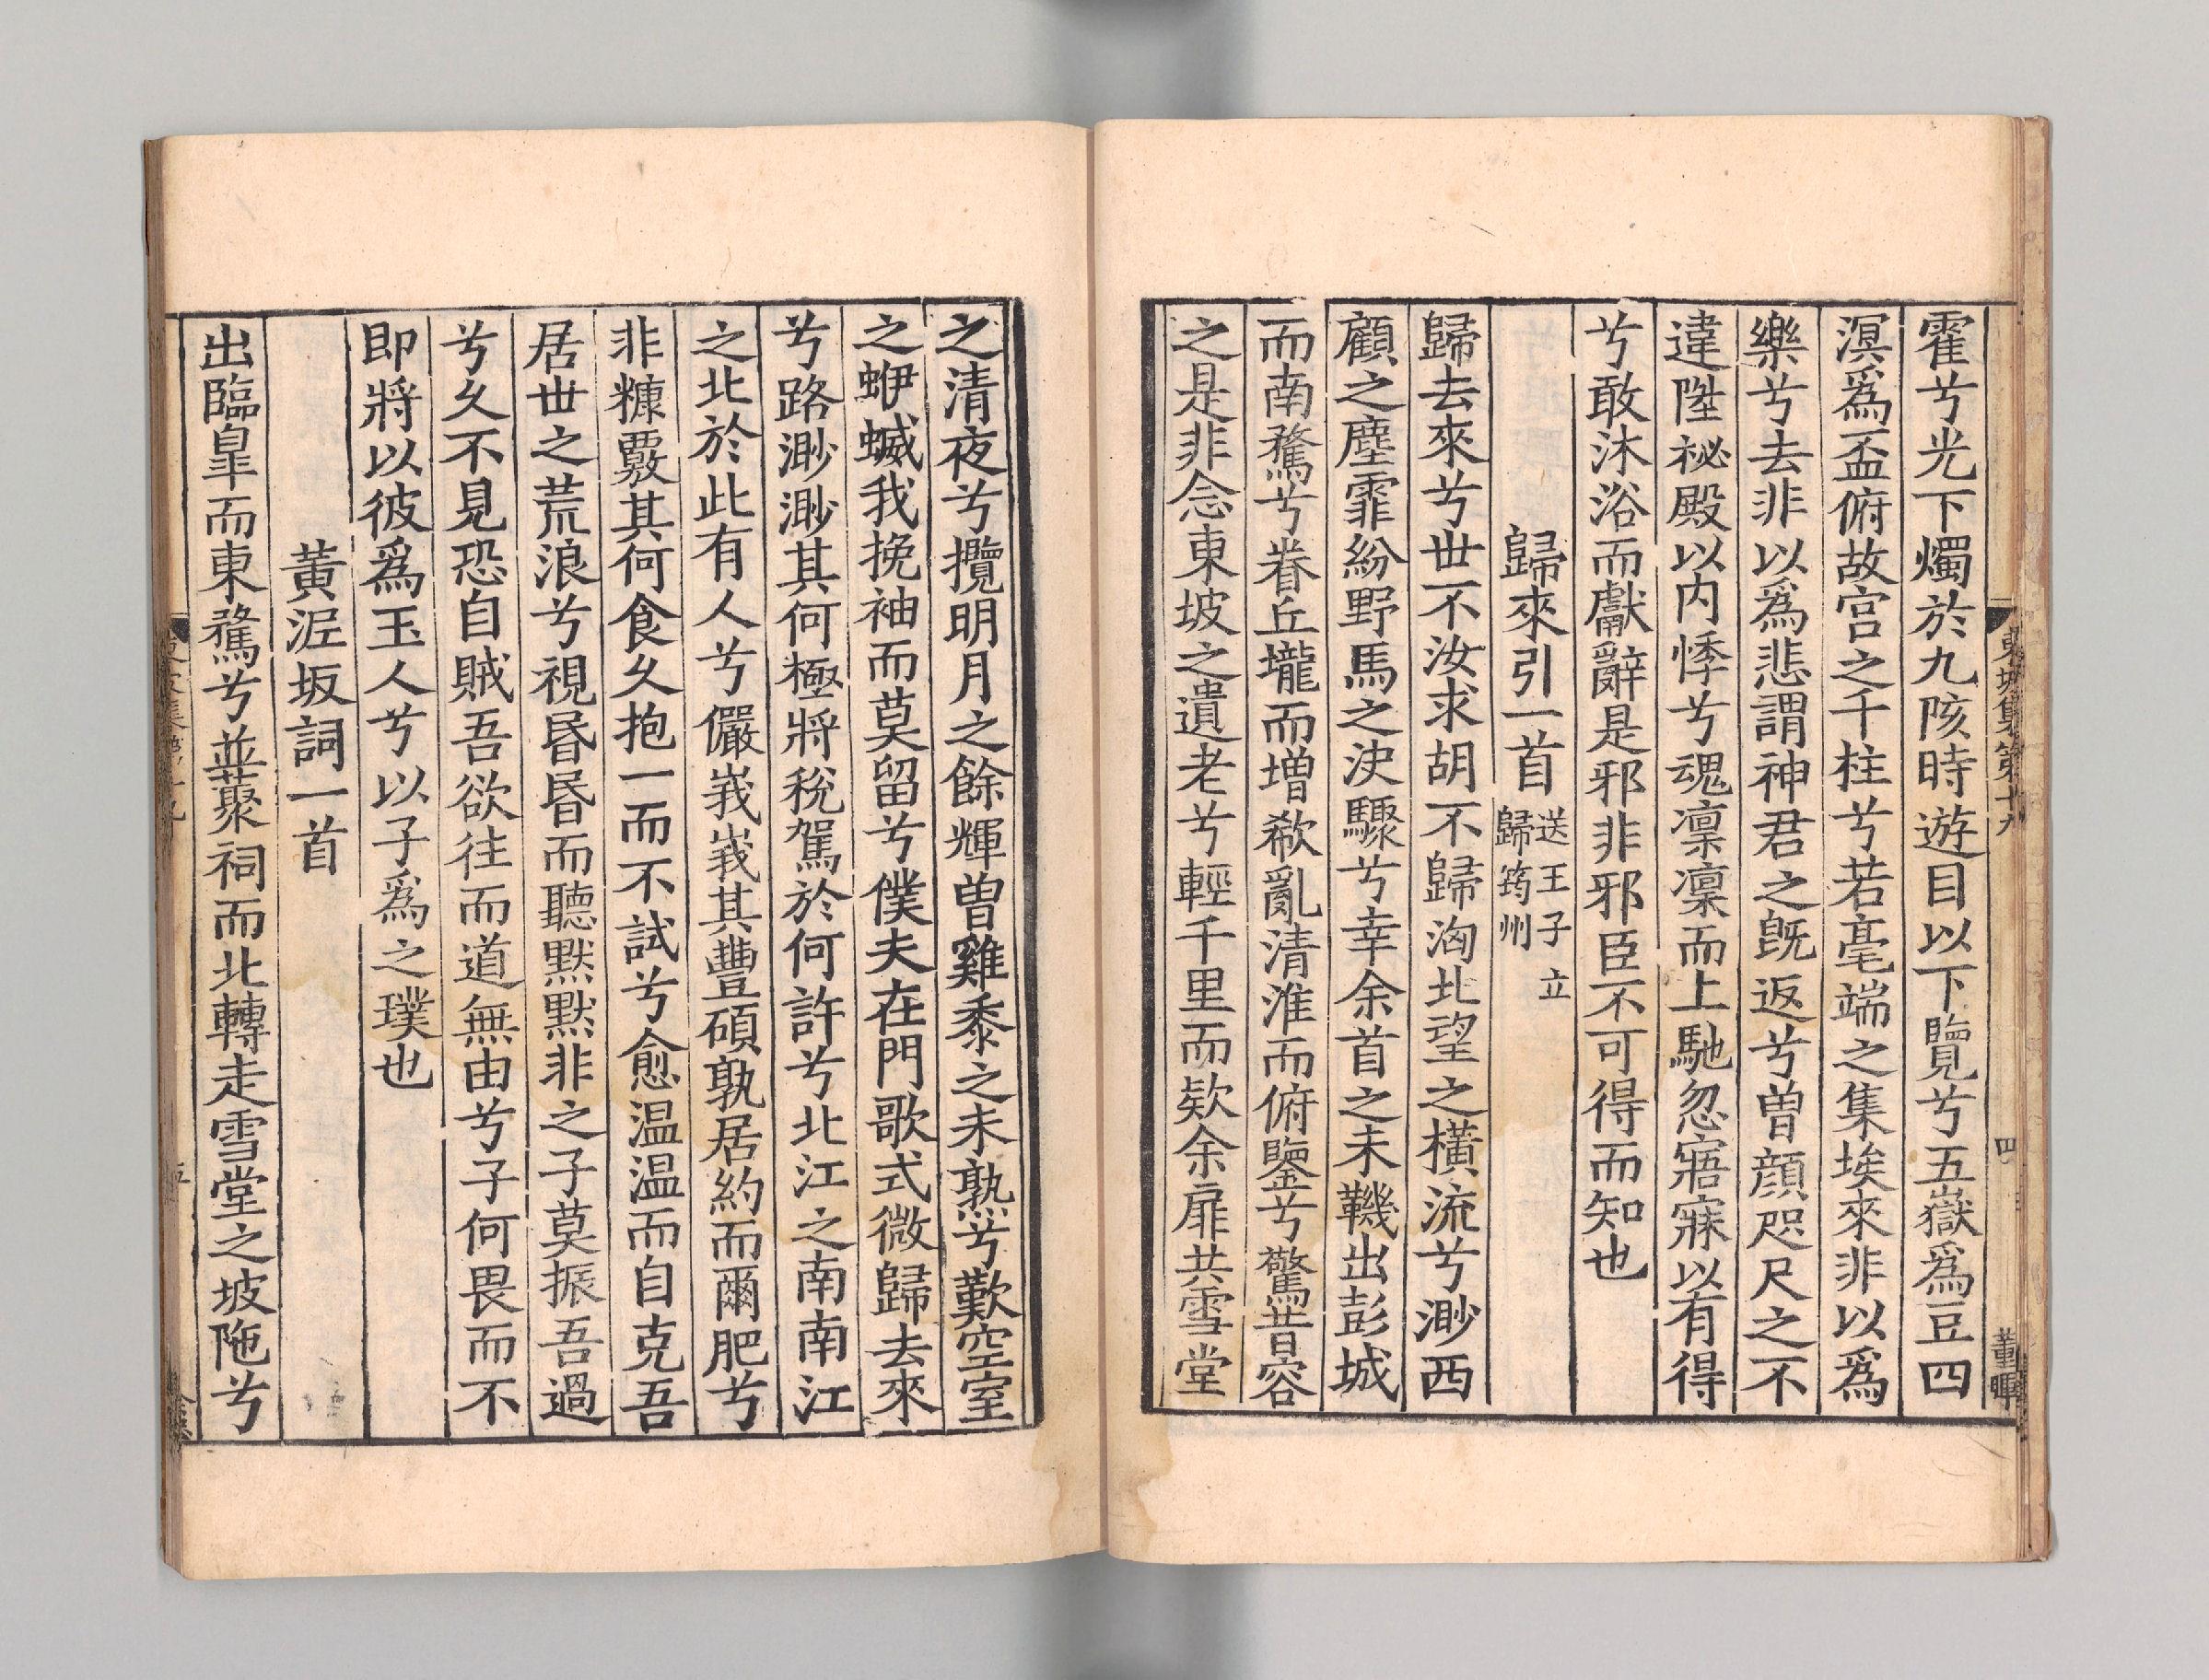 霍兮光下燭於九陔時遊目以下覽兮五嶽爲豆四
溟爲盃俯故宮之千柱兮若毫端之集埃來非以爲
樂兮去非以爲悲謂神君之旣返兮曽顔咫尺之不
違陞祕殿以内悸兮魂凛凛而上馳忽寤寐以有得
兮敢沐浴而獻辭是邪非邪臣不可得而知也
歸來引一首送王子立歸筠州
歸去來兮世不汝求胡不歸洶北望之橫流兮渺西
顧之塵霏紛野馬之決驟兮幸余首之未鞿出彭城
而南騖兮眷丘壠而增欷亂清淮而俯鑒兮驚昔容
之是非念東坡之遺老兮輕千里而欵余扉共雪堂
之清夜兮攬明月之餘輝曽雞黍之未熟兮歎空室
之蛜蝛我挽袖而莫留兮僕夫在門歌式微歸去來
兮路渺渺其何極將稅駕於何許兮北江之南南江
之北於此有人兮儼峩峩其豐碩孰居約而爾肥兮
非糠覈其何食久抱一而不試兮愈温温而自克吾
居世之荒浪兮視昬昬而聽默默非之子莫振吾過
兮久不見恐自賊吾欲往而道無由兮子何畏而不
即將以彼爲玉人兮以子爲之璞也
黃泥坂詞一首
出臨皐而東騖兮並藂祠而北轉走雪堂之坡陁兮
東坡集第十九
四
董暉